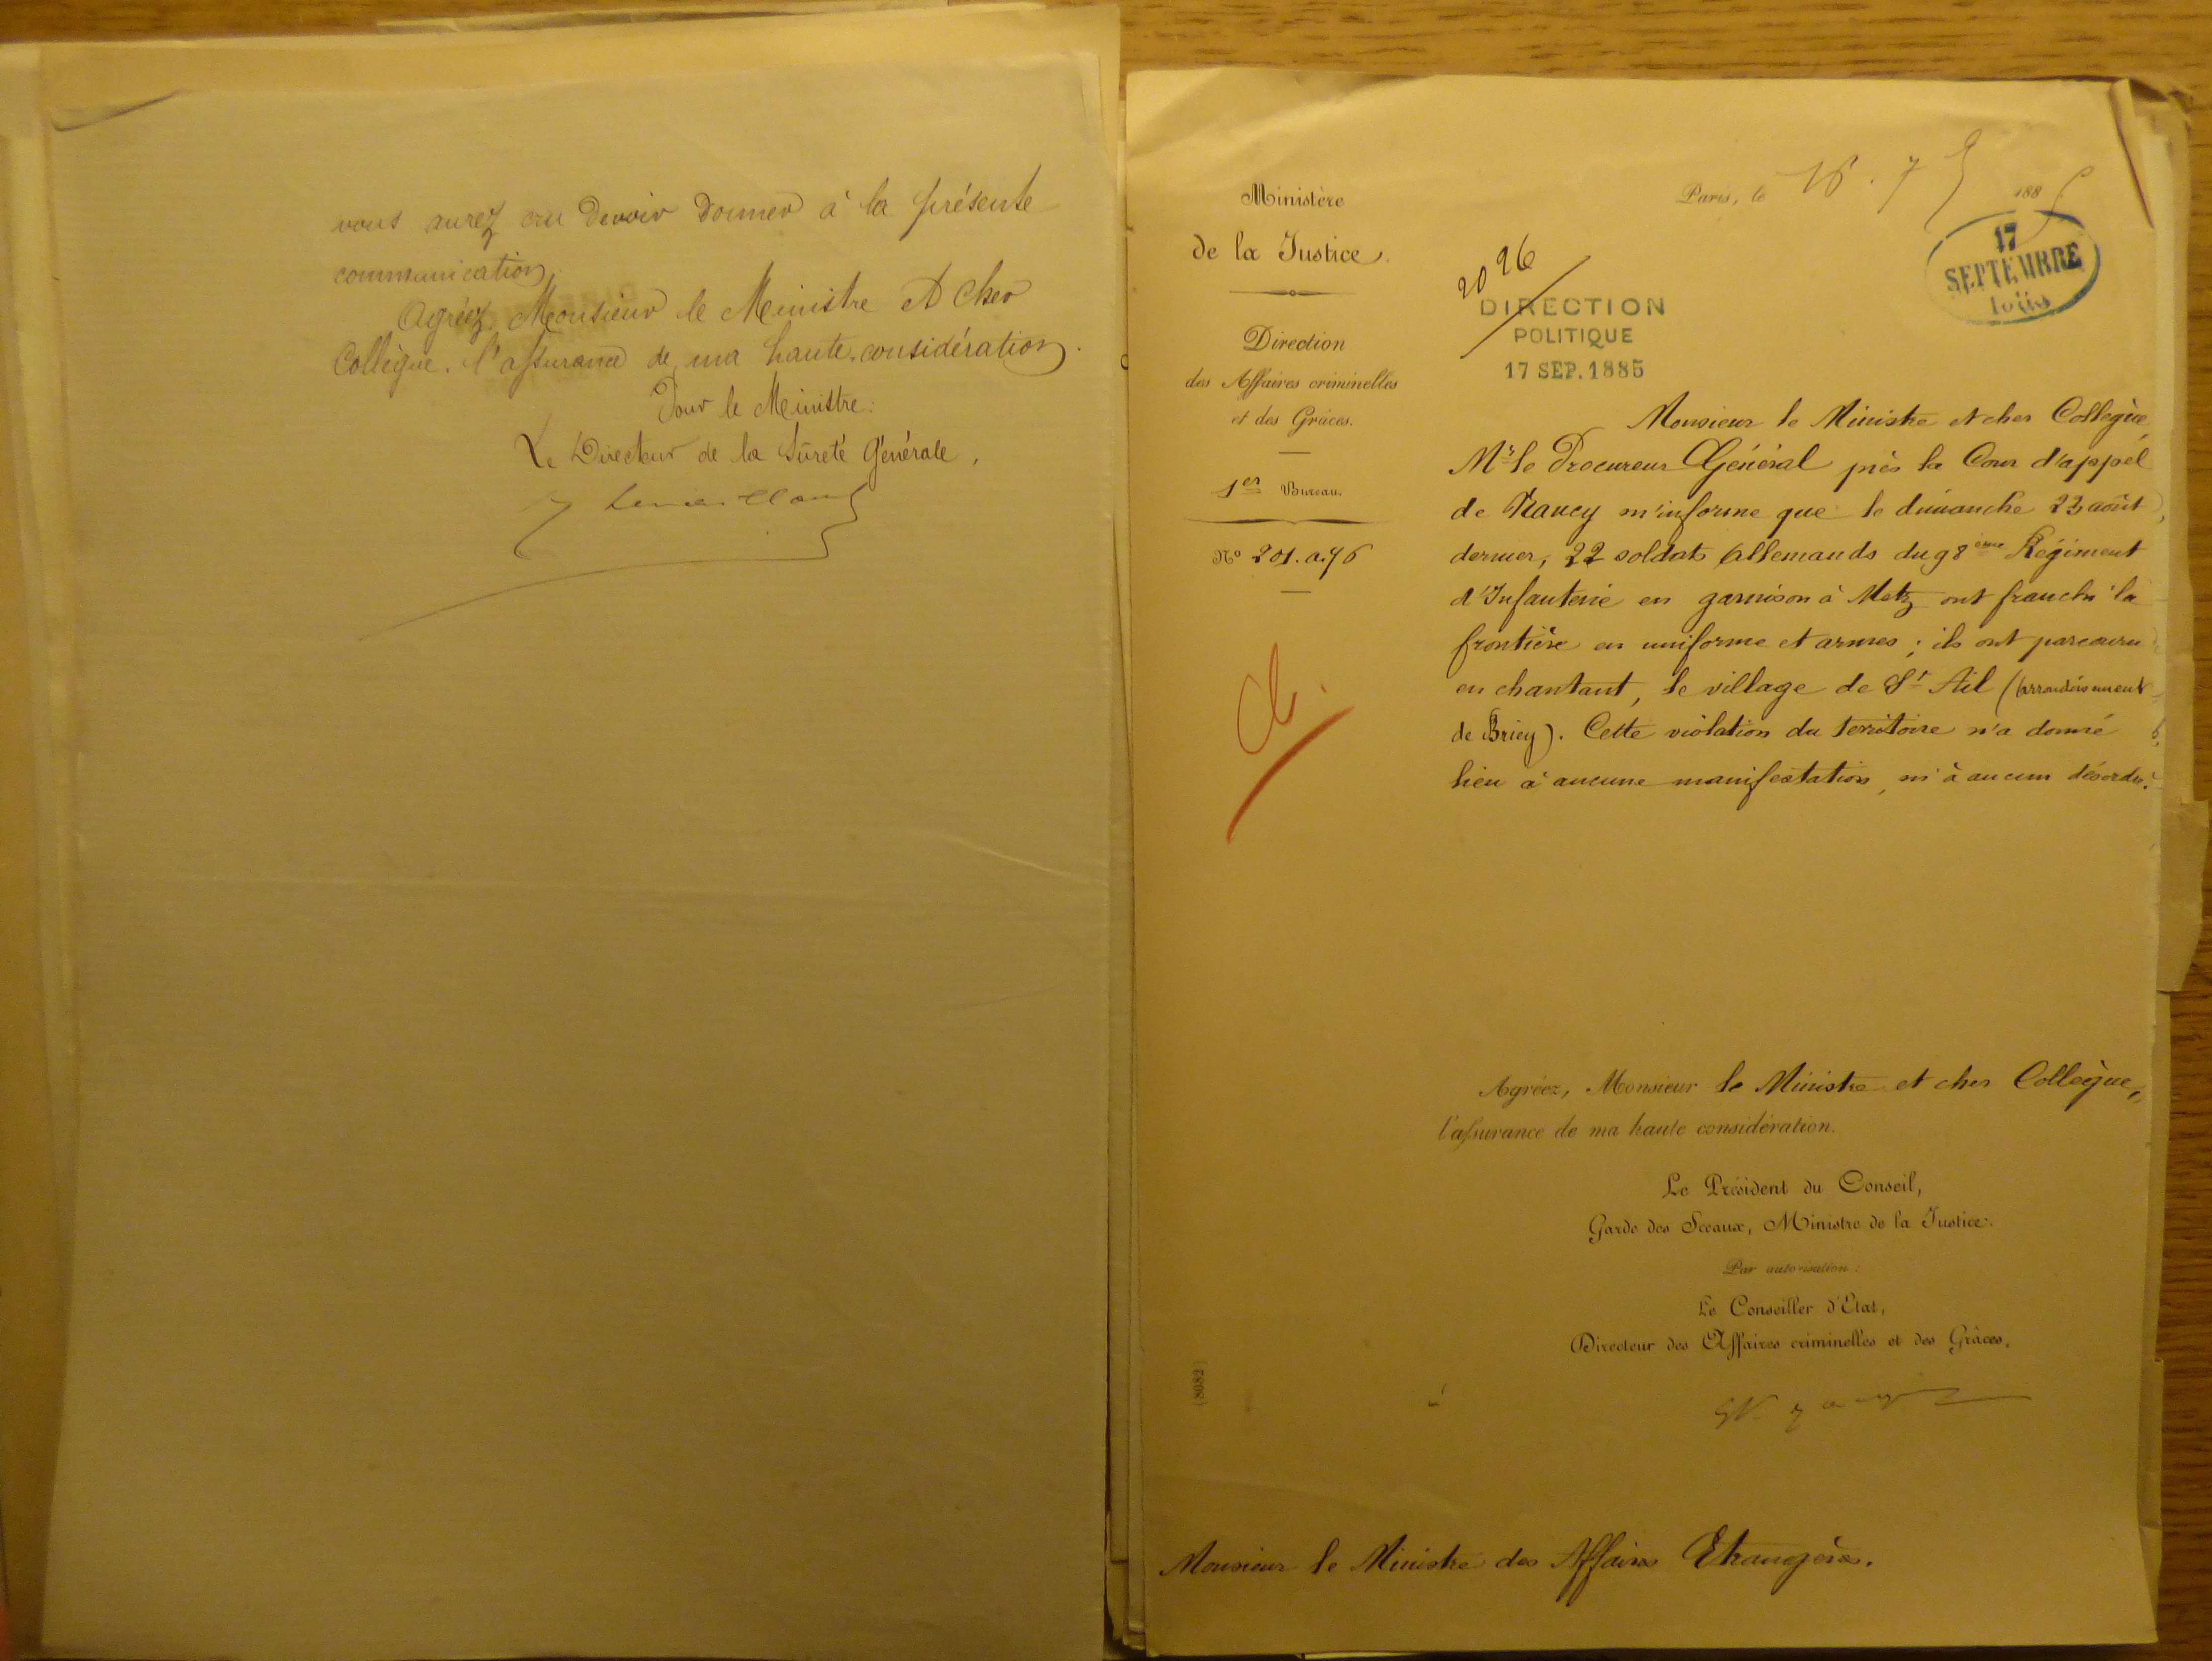 vous aurez cru devoir donner à la présente
communication.
Agréez, Monsieur le Ministre et cher
Collègue, l'assurance de ma haute considération.
Pour le Ministre:
Le Directeur de la Sûreté Générale,
Ministère
de la Justice.
Direction
des Affaires criminelles
et des Grâces.
1er Bureau.
No 201.a.76
Paris, le 16. 7bre 1885
17
SEPTEMBRE
2026
DIRECTION
POLITIQUE
17 SEP. 1885
Monsieur le Ministre et cher Collègue,
Mr le Procureur Général près la Cour d'appel
de Nancy m'informe que le dimanche 23 août
dernier, 22 soldats allemands du 98ème Régiment
d'Infanterie en garnison à Metz ont franchi la
frontière en uniforme et armes ; ils ont parcouru
en chantant, le village de St Ail (arrondissement
de Briey). Cette violation du territoire n'a donné
lieu à aucune manifestation, ni à aucun désordre.
Agréez, Monsieur le Ministre et cher Collègue,
l'assurance de ma haute considération.
Le Président du Conseil,
Garde des Sceaux, Ministre de la Justice:
Par autorisation:
Le Conseiller d'Etat,
Directeur des Affaires criminelles et des Grâces,
(8082)
Monsieur le Ministre des Affaires Etrangères.